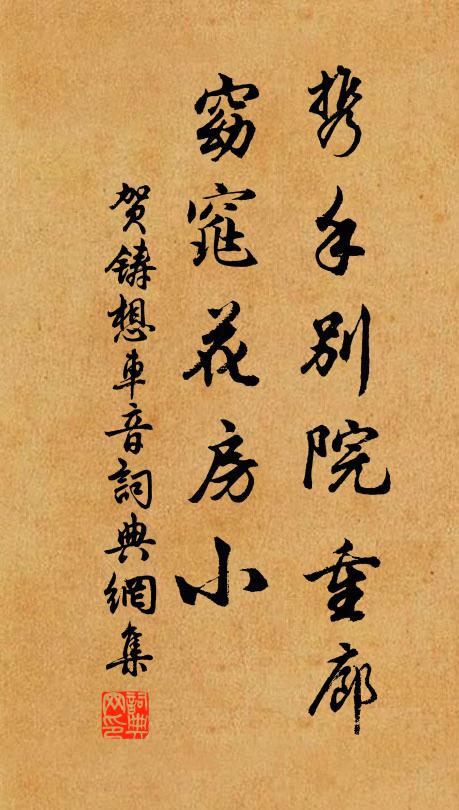 携手別院重廊
窈窕花房小
贺鑄想車音詞典網集
詞典
网印